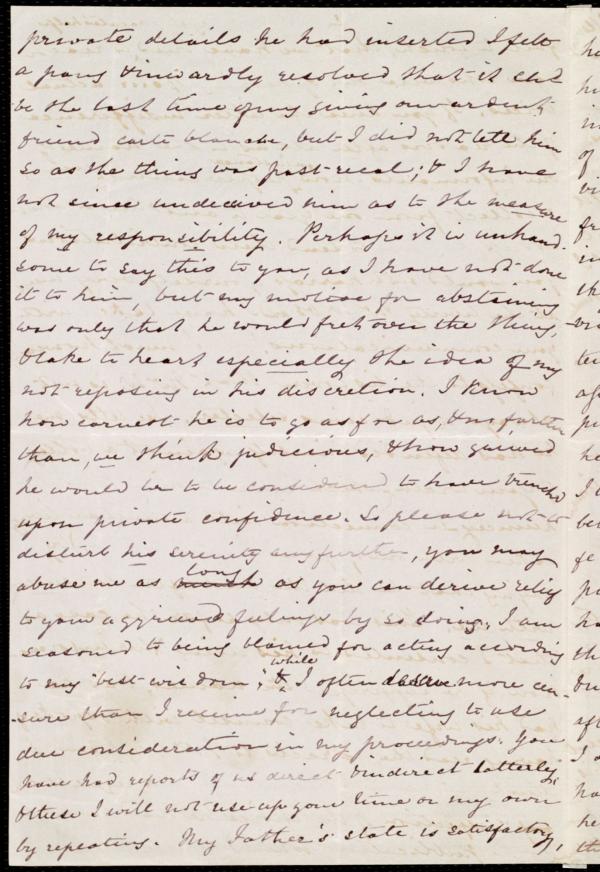 private details he had inserted I felt
a pang & inwardly resolved that it shd
be the last time of my giving our ardent
friend carte blanche, but I did not tell him
so as the thing was past recal; & I have
not since undeceived him as to the measure
of my responsibility. Perhaps it is unhand-
some to say this to you, as I have not done
it to him, but my motive for abstaining
was only that he would fret over the thing,
& take to heart especially the idea of my
not reposing in his discretion. I know
how earnest he is to go as far as, & no further
than, we think judicious, & how grieved
he would be to be considered to have trenched
upon private confidence. So please not to
disturb his serenity any further, you may
abuse me as long as you can derive relief
to your aggrieved feelings by so doing. I am
seasoned to being blamed for acting according
to my "best wisdom"; while I often deserve more cen-
-sure than I receive for neglecting to use
due consideration in my proceedings. You
have had reports of us direct & indirect latterly,
& these I will not use up your time or my own
by repeating. My Father's state is satisfactory,